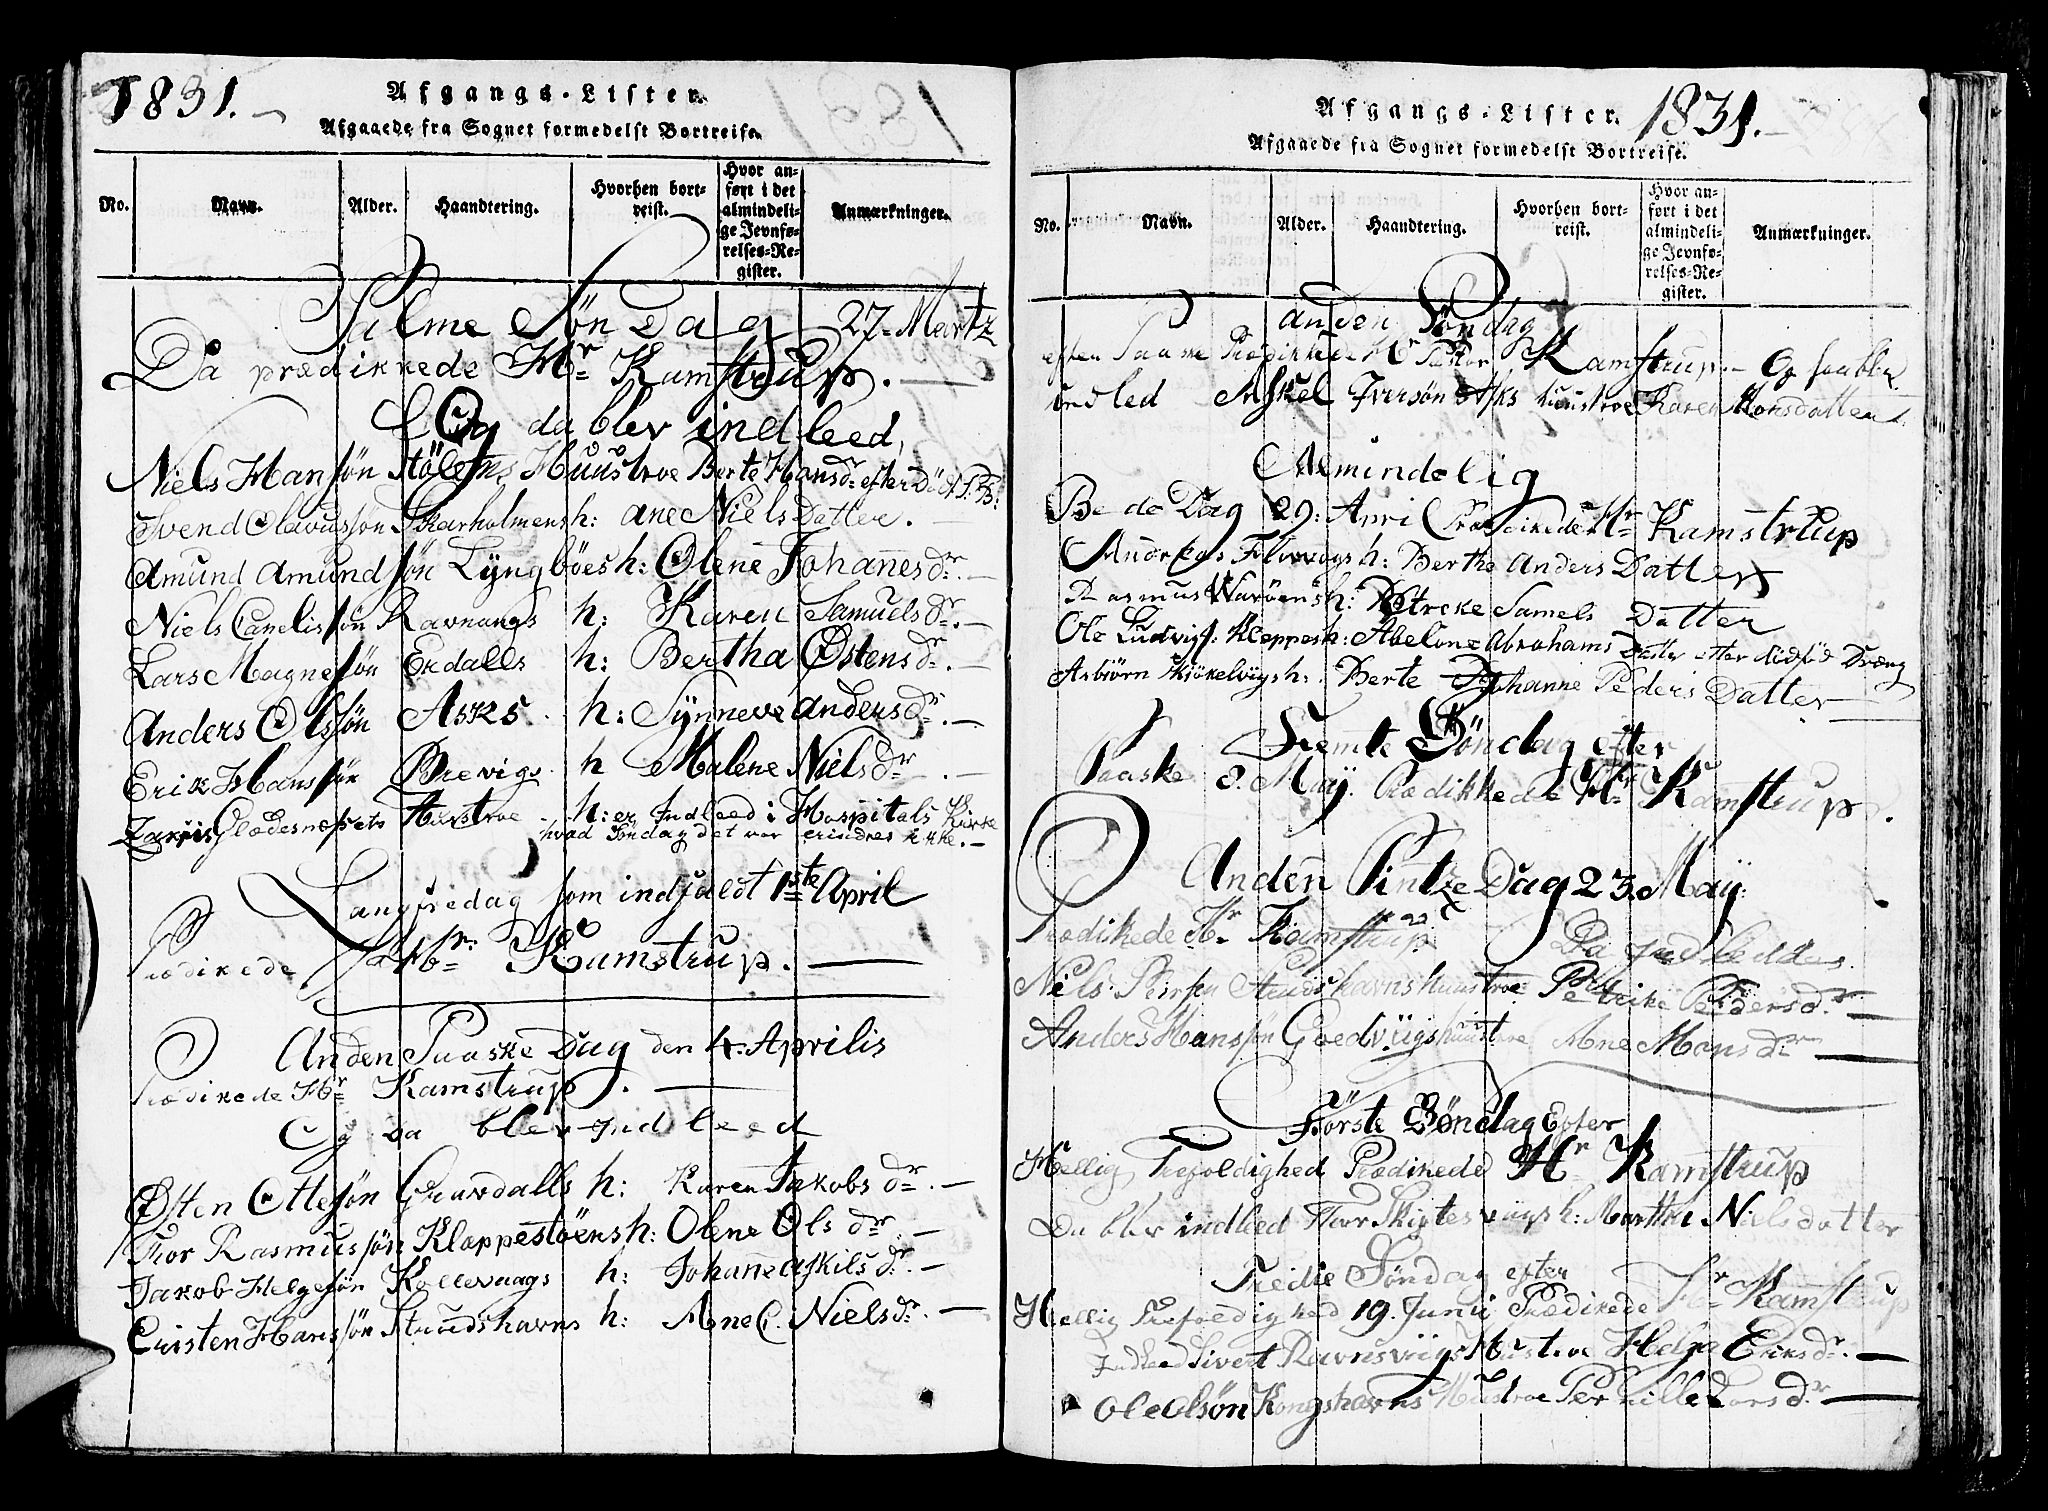 1831.
Afgangs-Lister.
Afgaaede fra Sognet formedelst Bortreise.
No. Navn. Alder. Haandtering. Hvorhen bortreist. Hvor anført i det almindelige Jevnførelses-Register. Anmærkninger.
Palme Søn Dag 27. Martz
Da prædikkede Hr Kamstrup.
Og da blev indleed,
Niels Hansøn Stölens Huustroe Berte Hansdr efter Död
Svend Olavussøn Skarholmens h: ane Niels Datter.
Amund Amundsøn Lyngböes h: Olene Johannesdr.
Niels Canelissøn Ravnangs h: Karen Samuelsdr.
Lars Magnesøn Erdalls h: Bertha Østensdr.
Anders Olssøn Asks h: Synneve andersdr.
Erik Hanssøn Brevigs h Malene Nielsdr.
Zariis Glædesnæssets Hustroe h: er Indleed i Hospitals Kirke
hvad Sødag det var erindres ikke.
Langfredag som indfaldt 1ste April
Prædikede Hr. Kamstrup.
Anden Paaske Dag den 4. Aprilis
Prædikede Hr Kamstrup.
Og da blev Indleed
Østen Ottesøn Gravdalls h: Karen Jakobs dr.
Thor Rasmussøn Kloppestöens h: Olene Ols dr.
Jakob Helgesøn Kollevaags h: Johane Askils dr.
Cristen Hansøn Strudshavns h: Ane C. Niels dr.
Afgangs-Lister. 1831.
Afgaaede fra Sognet formedelst Bortreise.
No. Navn. Alder. Haandtering. Hvorhen bortreist. Hvor anført i det almindelige Jevnførelses-Register. Anmærkninger.
anden Søndag
efter Paaske Prædikkede Hr Pastor Kamstrup. Og saa blev
indled Askel Iversøn Asks huustroe Karen Monsdatter
Almindelig
Bede Dag 29: Apri Prædikede Hr Kamstrup
Andreas Florvogs h: Berthe Anders Datter
Rasmus Waröens h: Petreke Samels Datter
Ole Ludvigs: Kleppes h: Abelone Abrahams Datter efter dödföd Dræng
Asbiörn Skiökelvigs h: Berte Johanne Peders Datter
Femte Søndag efter
Paaske 8. May. Prædikkede Hr Kamstrup.
Anden Pintze Dag 23. May:
Prædikede Hr Kamstrup Da Indledder
Niels Peirsen Strudshavns huustroe Petrike Pedersdr.
Anders Hanssøn Goedvigs huustroe Ane Mons dr
Förste Söndag Efter
Hellig Trefoldighed Prædikede Hr Kamstrup
Da blev indlied Thor Skiptesvigs h: Martha Nielsdatter
Tredie Søndag efter
Hellig Trefoldighed 19. Junii Prædikede Hr Kamstrup
Indleed Sivert Ravnsvigs Hustroe Helga Eriksdr.
Ole Olsøn Kongshavns Hustroe Pernille Larsdr.